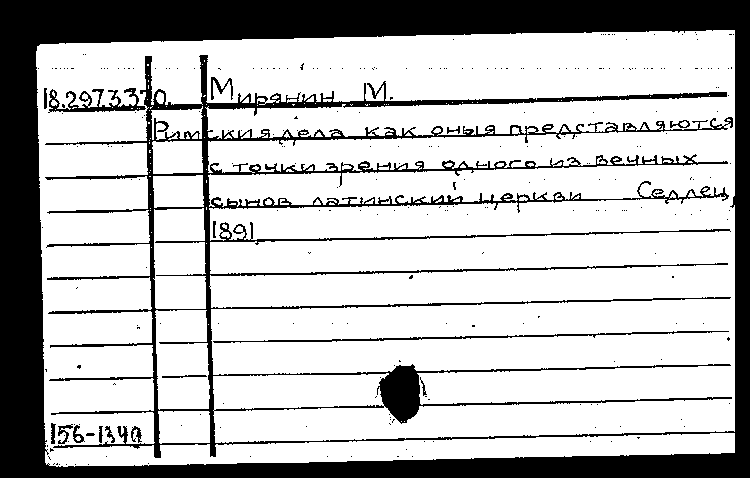 18.297.3.370. Мирянин М.
Римския дела как оныя представляются
с точки зрения одного из вечных
сынов латинский церкви Седлец,
1891
156-1340